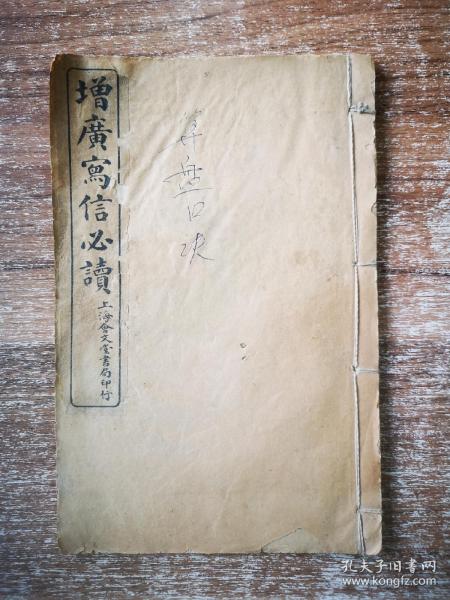 增廣寫信必讀
上海會文堂書局印行
算盘口决
孔夫子旧书网
www.kongfz.com